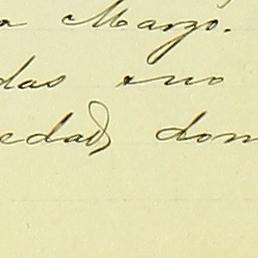 a Marzo.
das eno
edad, don